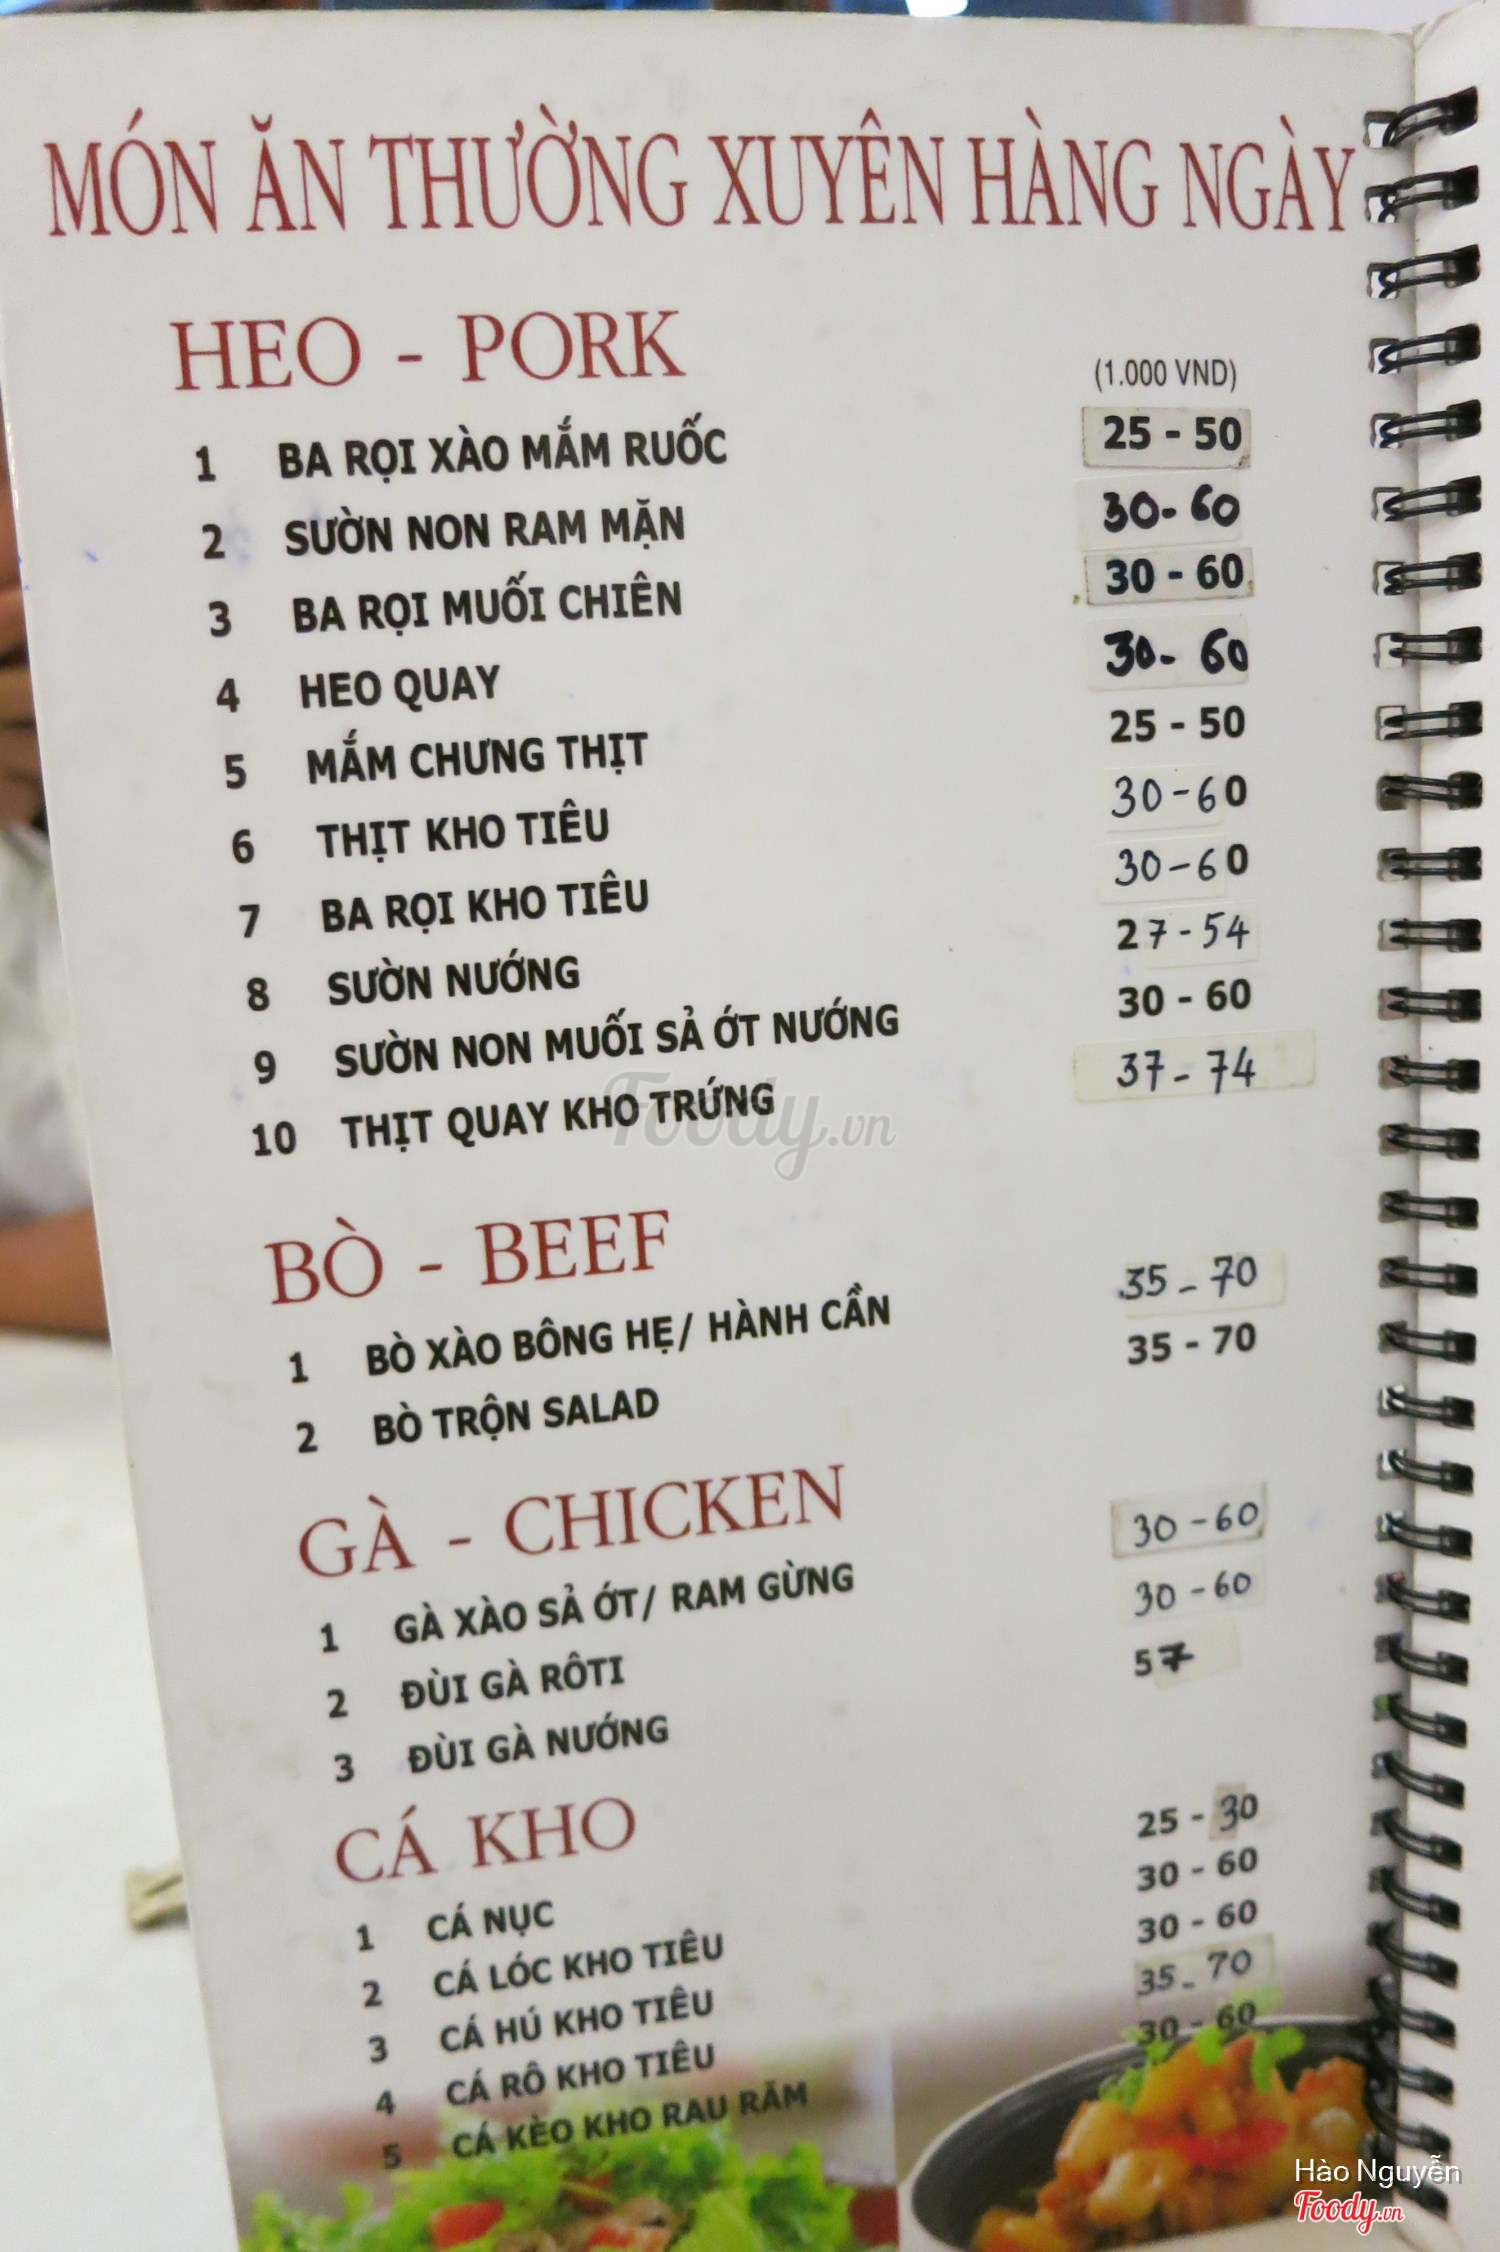 MÓN ĂN THƯỜNG XUYÊN HÀNG NGÀY
HEO - PORK
(1.000 VND)
1 BA RỌI XÀO MẮM RUỐC 25 - 50
2 SƯỜN NON RAM MẶN 30 - 60
3 BA RỌI MUỐI CHIÊN 30 - 60
4 HEO QUAY 30 - 60
5 MẮM CHƯNG THỊT 25 - 50
6 THỊT KHO TIÊU 30 - 60
7 BA RỌI KHO TIÊU 30 - 60
8 SƯỜN NƯỚNG 27 - 54
9 SƯỜN NON MUỐI SẢ ỚT NƯỚNG 30 - 60
10 THỊT QUAY KHO TRỨNG 37 - 74
Foody.vn
BÒ - BEEF
1 BÒ XÀO BÔNG HẸ/ HÀNH CẦN 35 - 70
2 BÒ TRỘN SALAD 35 - 70
GÀ - CHICKEN
1 GÀ XÀO SẢ ỚT/ RAM GỪNG 30 - 60
2 ĐÙI GÀ RÔTI 30 - 60
3 ĐÙI GÀ NƯỚNG 57
CÁ KHO
1 CÁ NỤC 25 - 30
2 CÁ LÓC KHO TIÊU 30 - 60
3 CÁ HÚ KHO TIÊU 30 - 60
4 CÁ RÔ KHO TIÊU 35 - 70
5 CÁ KÈO KHO RAU RĂM 30 - 60
Hào Nguyễn
Foody.vn